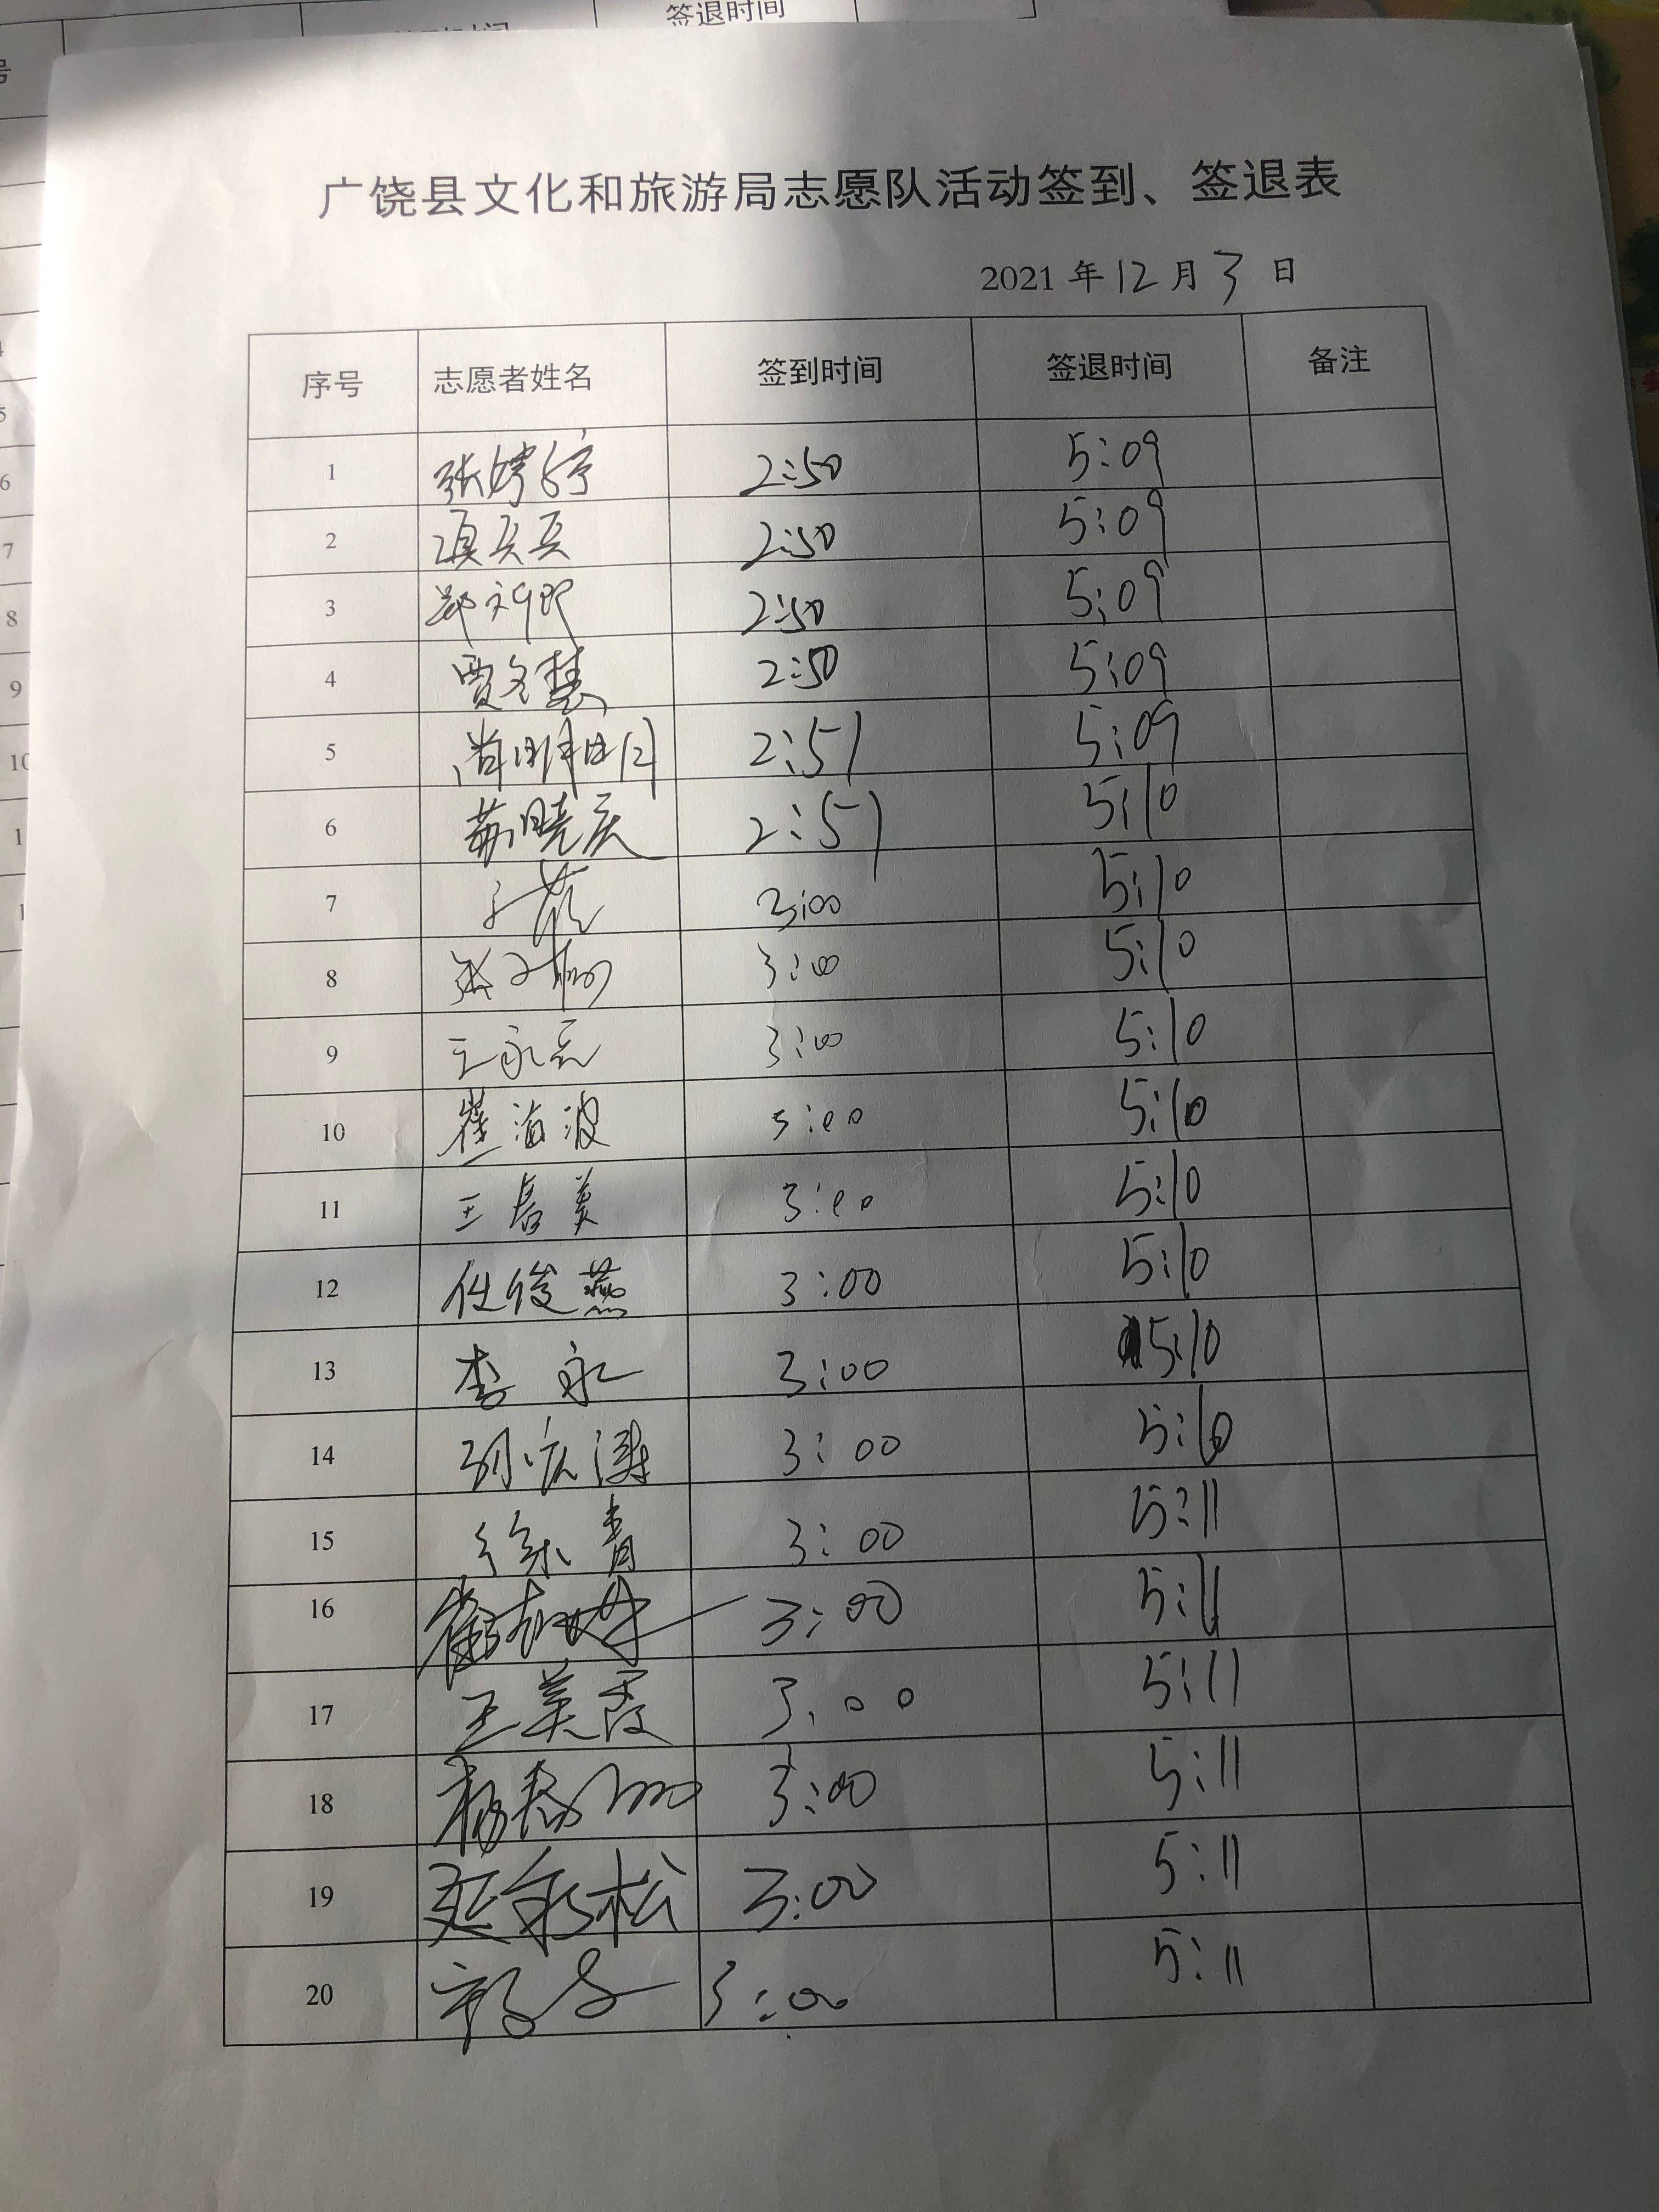 签退时间
广饶县文化和旅游局志愿队活动签到、签退表
2021 年 12 月 3 日
序号 志愿者姓名 签到时间 签退时间 备注
1 张婷婷 2:50 5:09
2 2:50 5:09
3 2:50 5:09
4 贾冬慧 2:50 5:09
5 尚明明 2:51 5:09
6 苏晓庆 2:51 5:10
7 3:00 5:10
8 3:00 5:10
9 3:00 5:10
10 崔海波 3:00 5:10
11 王春美 3:00 5:10
12 任俊燕 3:00 5:10
13 李永 3:00 5:10
14 3:00 5:10
15 徐青 3:00 5:11
16 3:00 5:11
17 王美霞 3:00 5:11
18 3:00 5:11
19 延永松 3:00 5:11
20 3:00 5:11